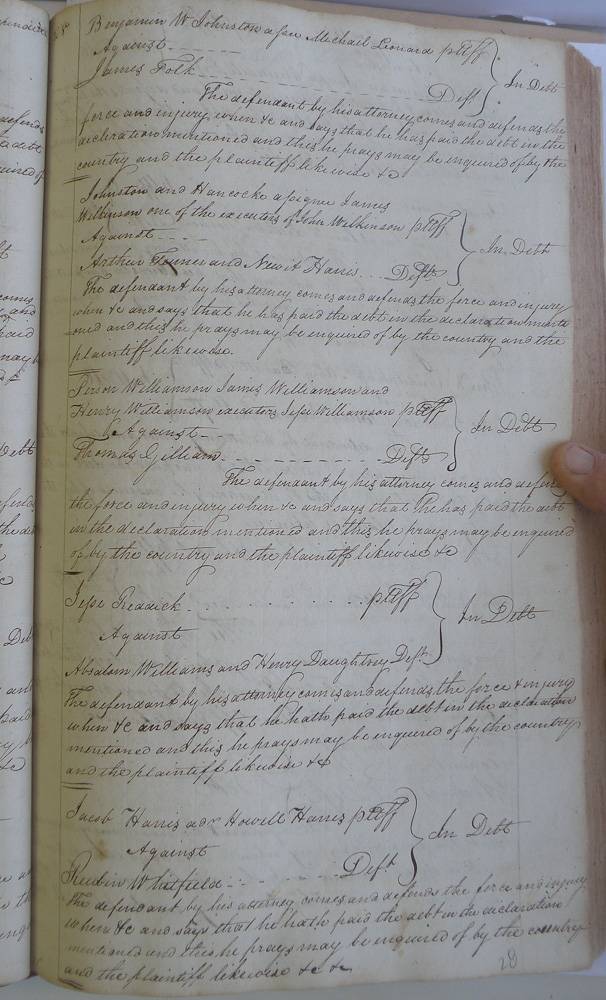 Benjamin W Johnston assee Michael Leonard pltff
Against
James Folk Deft
In Debt
The defendant by his attorney comes and defends the
force and injury when &c and says that he has paid the debt in the
declaration mentioned and this he prays may be enquired of by the
country and the plaintiff likewise &c
Johnston and Hancocke assignee James
Wilkinson one of the executors of John Wilkinson pltff
Against
Arthur and Newit Harris Defts
In Debt
The defendant by his attorney comes and defends the force and injury
when &c and says that he has paid the debt in the declaration menti
oned and this he prays may be enquired of by the country and the
plaintiff likewise.
Person Williamson James Williamson and
Henry Williamson executors Jesse Williamson pltff
Against
Thomas Gilliam Deft
In Debt
The defendant by his attorney comes and defends
the force and injury when &c and says that he has paid the debt
in the declaration mentioned and this he prays may be enquired
of by the country and the plaintiff likewise &c
Jesse Reddick pltff
Against
Absalom Williams and Henry Daughtrey Deft
In Debt
The defendant by his attorney comes and defends the force & injury
when &c and says that he hath paid the debt in the declaration
mentioned and this he prays may be enquired of by the country
and the plaintiff likewise &c
Jacob Harris adr Howell Harris pltff
Against
Reubin Whitfield Deft
In Debt
The defendant by his attorney comes and defends the force and injury
when &c and says that he hath paid the debt in the declaration
mentioned and this he prays may be enquired of by the country
and the plaintiff likewise &c &c
28